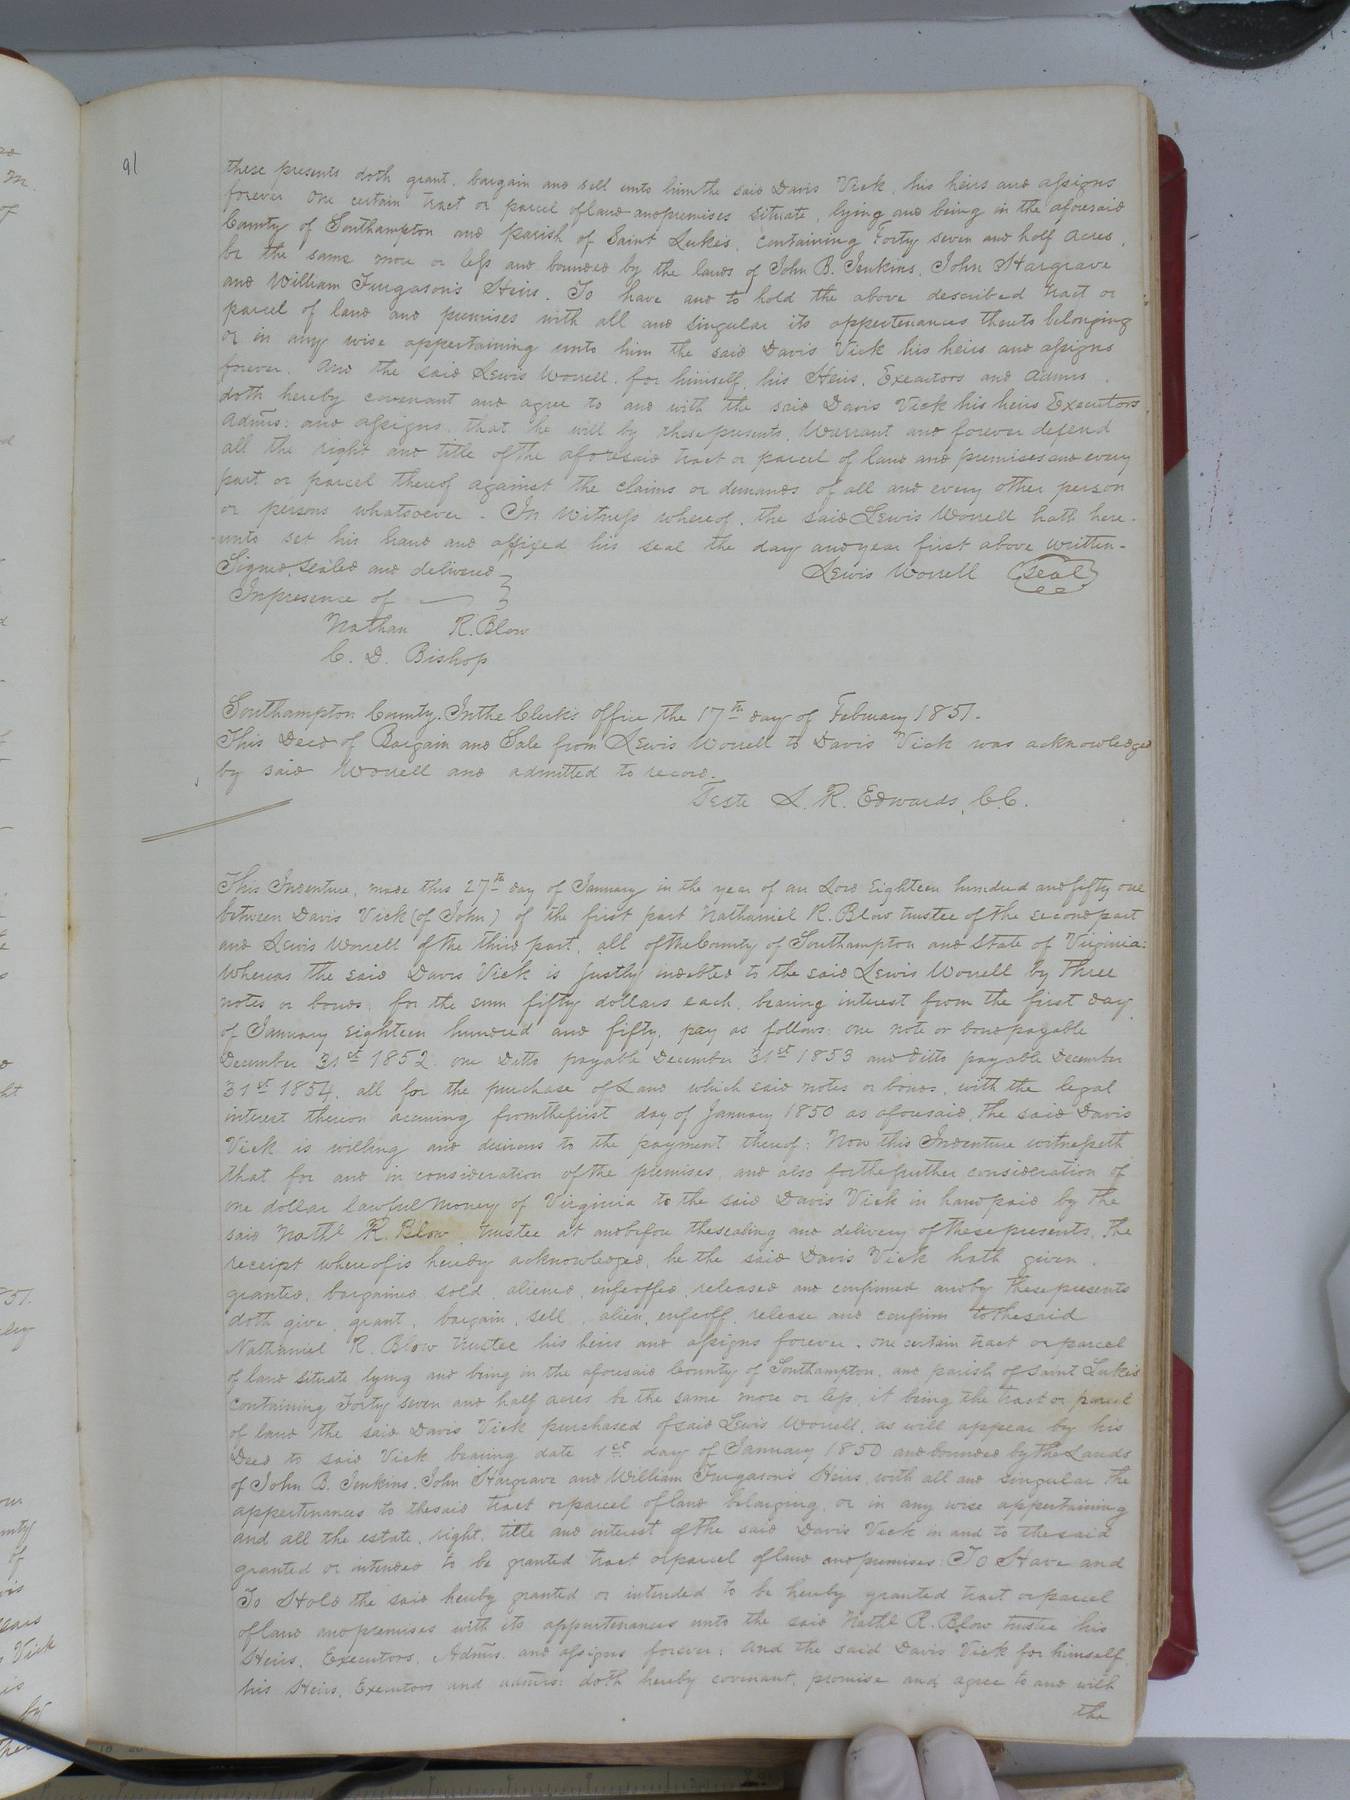 91
these presents doth grant, bargain and sell unto him the said Davis Vick, his heirs and assigns
forever One certain tract or parcel of land and premises situate, lying and being in the aforesaid
County of Southampton and parish of Saint Lukes, containing Forty seven and half Acres,
be the same more or less and bounded by the lands of John B. Jenkins, John Hargrave
and William Furgason's Heirs. To have and to hold the above described tract or
parcel of land and premises with all and singular its appertenances thereto belonging
or in any wise appertaining unto him the said Davis Vick his heirs and assigns
forever. And the said Lewis Worrell, for himself, his Heirs, Executors and Admrs.
doth hereby covenant and agree to and with the said Davis Vick his heirs Executors,
Admrs: and assigns, that he will by these presents, Warrant and forever defend
all the right and title of the aforesaid tract or parcel of land and premises and every
part or parcel thereof against the claims or demands of all and every other person
or persons whatsoever. In Witness whereof, the said Lewis Worrell hath here-
unto set his hand and affixed his seal the day and year first above written-
Signed, Sealed and delivered } Lewis Worrell (Seal)
In presence of }
Nathan R. Blow
C. D. Bishop
Southampton County. In the Clerk's office the 17th day of February 1851.
This Deed of Bargain and Sale from Lewis Worrell to Davis Vick was acknowledged
by said Worrell and admitted to record.
Teste L. R. Edwards, C.C.
This Indenture, made this 27th day of January in the year of our Lord Eighteen hundred and fifty one
between Davis Vick (of John) of the first part Nathaniel R. Blow trustee of the second part
and Lewis Worrell of the third part, all of the County of Southampton and State of Virginia:
Whereas the said Davis Vick is justly indebted to the said Lewis Worrell by three
notes or bonds, for the sum fifty dollars each, bearing interest from the first day
of January Eighteen hundred and fifty, pay as follows: one note or bond payable
December 31st 1852. one Ditto payable December 31st 1853 and ditto payable December
31st 1854, all for the purchase of Land which said notes or bonds, with the legal
interest thereon accruing from the first day of January 1850 as aforesaid, the said Davis
Vick is willing and desirous to the payment thereof: Now this Indenture witnesseth
that for and in consideration of the premises, and also for the further consideration of
one dollar lawful money of Virginia to the said Davis Vick in hand paid by the
said Nathl R. Blow trustee at and before the sealing and delivery of these presents, the
receipt whereof is hereby acknowledged, he the said Davis Vick hath given,
granted, bargained sold, aliened, enfeoffed, released and confirmed and by these presents
doth give, grant, bargain, sell, alien, enfeoff, release and confirm to the said
Nathaniel R. Blow trustee his heirs and assigns forever. one certain tract or parcel
of land situate lying and being in the aforesaid County of Southampton, and parish of Saint Luke's
containing Forty seven and half acres be the same more or less, it being the tract or parcel
of land the said Davis Vick purchased of said Lewis Worrell, as will appear by his
Deed to said Vick bearing date 1st day of January 1850 and bounded by the Lands
of John B. Jenkins, John Hargrave and William Furgason's Heirs, with all and singular the
appertenances to the said tract or parcel of land belonging, or in any wise appertaining
and all the estate, right, title and interest of the said Davis Vick in and to the said
granted or intended to be granted tract or parcel of land and premises: To Have and
To Hold the said hereby granted or intended to be hereby granted tract or parcel
of land and premises with its appurtenances unto the said Nathl R. Blow trustee his
Heirs, Executors, Admrs. and assigns forever: And the said Davis Vick for himself,
his Heirs, Executors and admrs: doth hereby covenant, promise and agree to and with
the